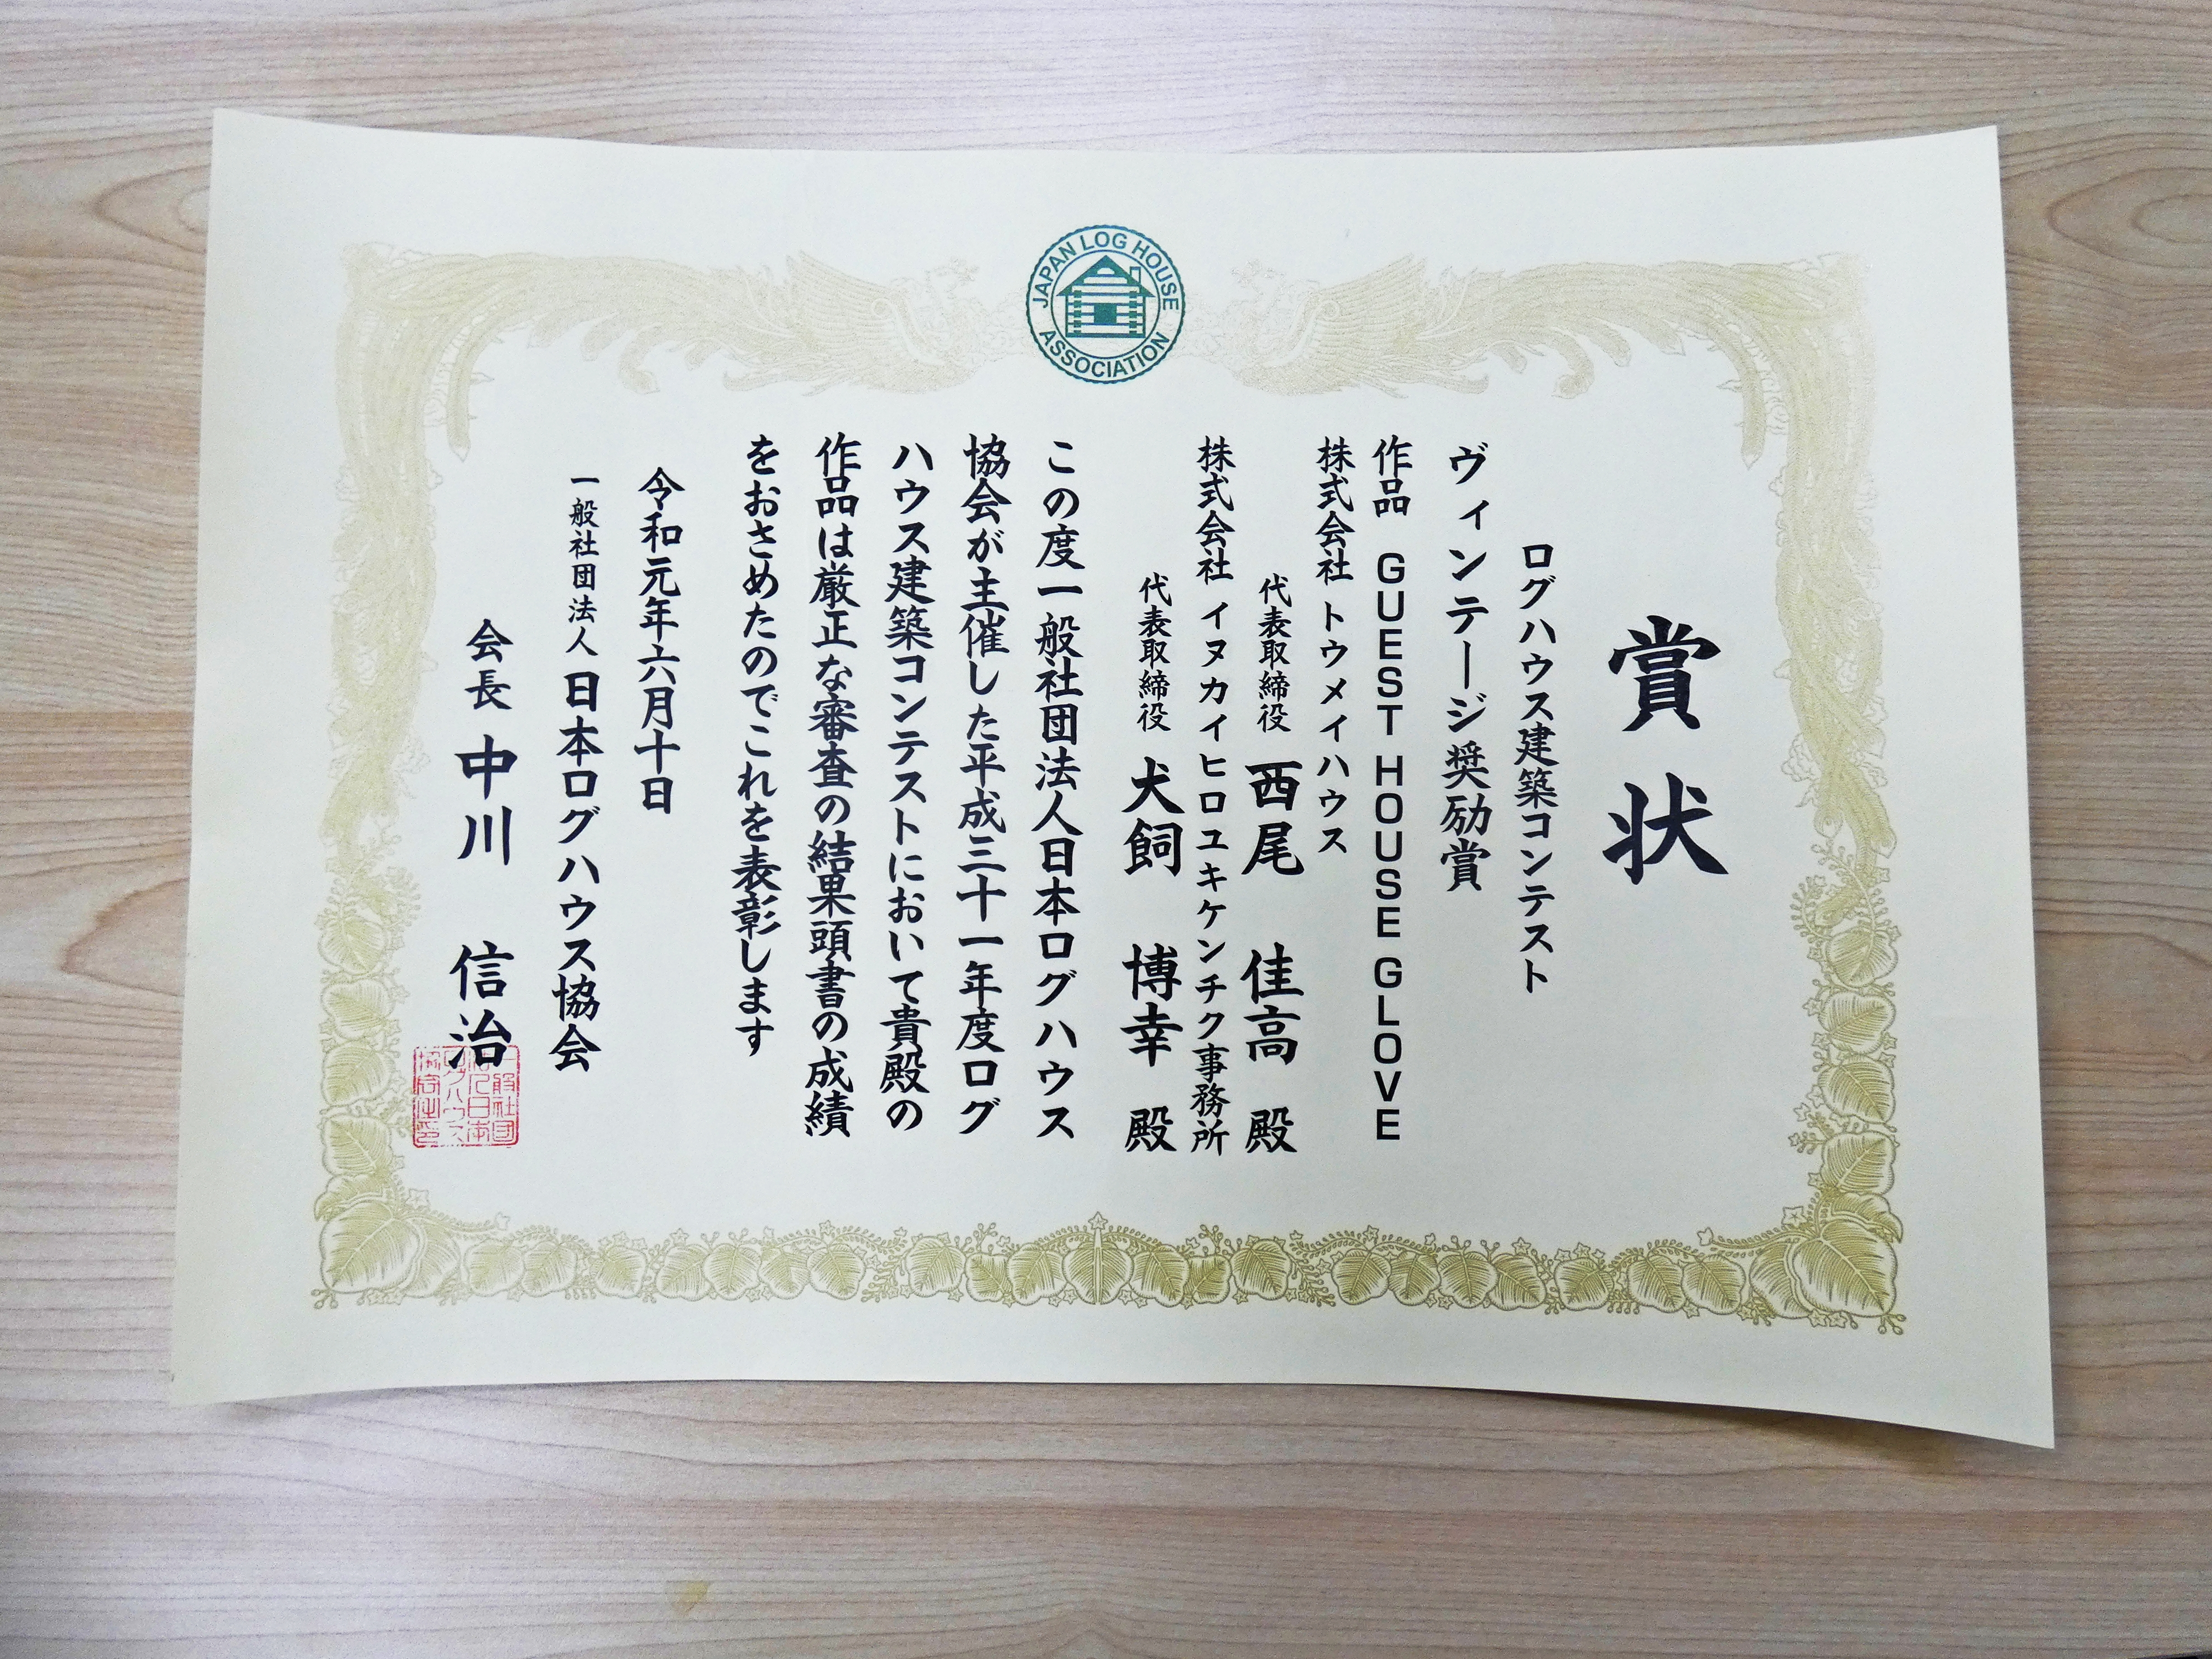 JAPAN LOG HOUSE ASSOCIATION
賞状
ログハウス建築コンテスト
ヴィンテージ奨励賞
作品 GUEST HOUSE GLOVE
株式会社 トウメイハウス
代表取締役 西尾 佳高 殿
株式会社 イヌカイヒロユキケンチク事務所
代表取締役 犬飼 博幸 殿
この度一般社団法人日本ログハウス
協会が主催した平成三十一年度ログ
ハウス建築コンテストにおいて貴殿の
作品は厳正な審査の結果頭書の成績
をおさめたのでこれを表彰します
令和元年六月十日
一般社団法人 日本ログハウス協会
会長 中川 信治
一般社団
法人日本
ログハウス
協会之印